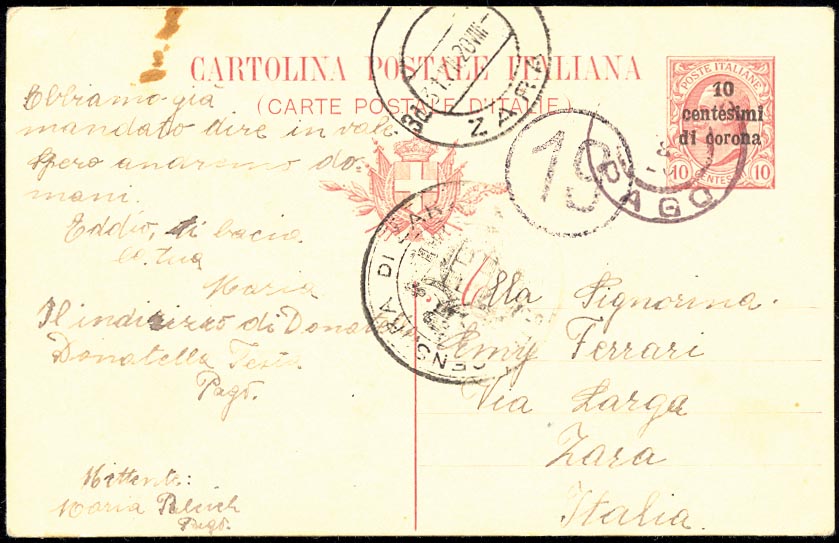 CARTOLINA POSTALE ITALIANA
(CARTE POSTALE D'ITALIE)
POSTE ITALIANE
10
centesimi
di corona
10 CENTESIMI 10
ZARA
19
PAGO
CENSURA DI ZARA
Ebbiamo già
mandato dire in vale
spero andremo do-
mani.
Eddio, ti bacia
la tua
Maria
Il indirizzo di Donat
Donatella Testa
Pagò.
Mittente:
Maria
Pago.
Alla Signorina.
Amy Ferrari
Via Larga
Zara
Italia.